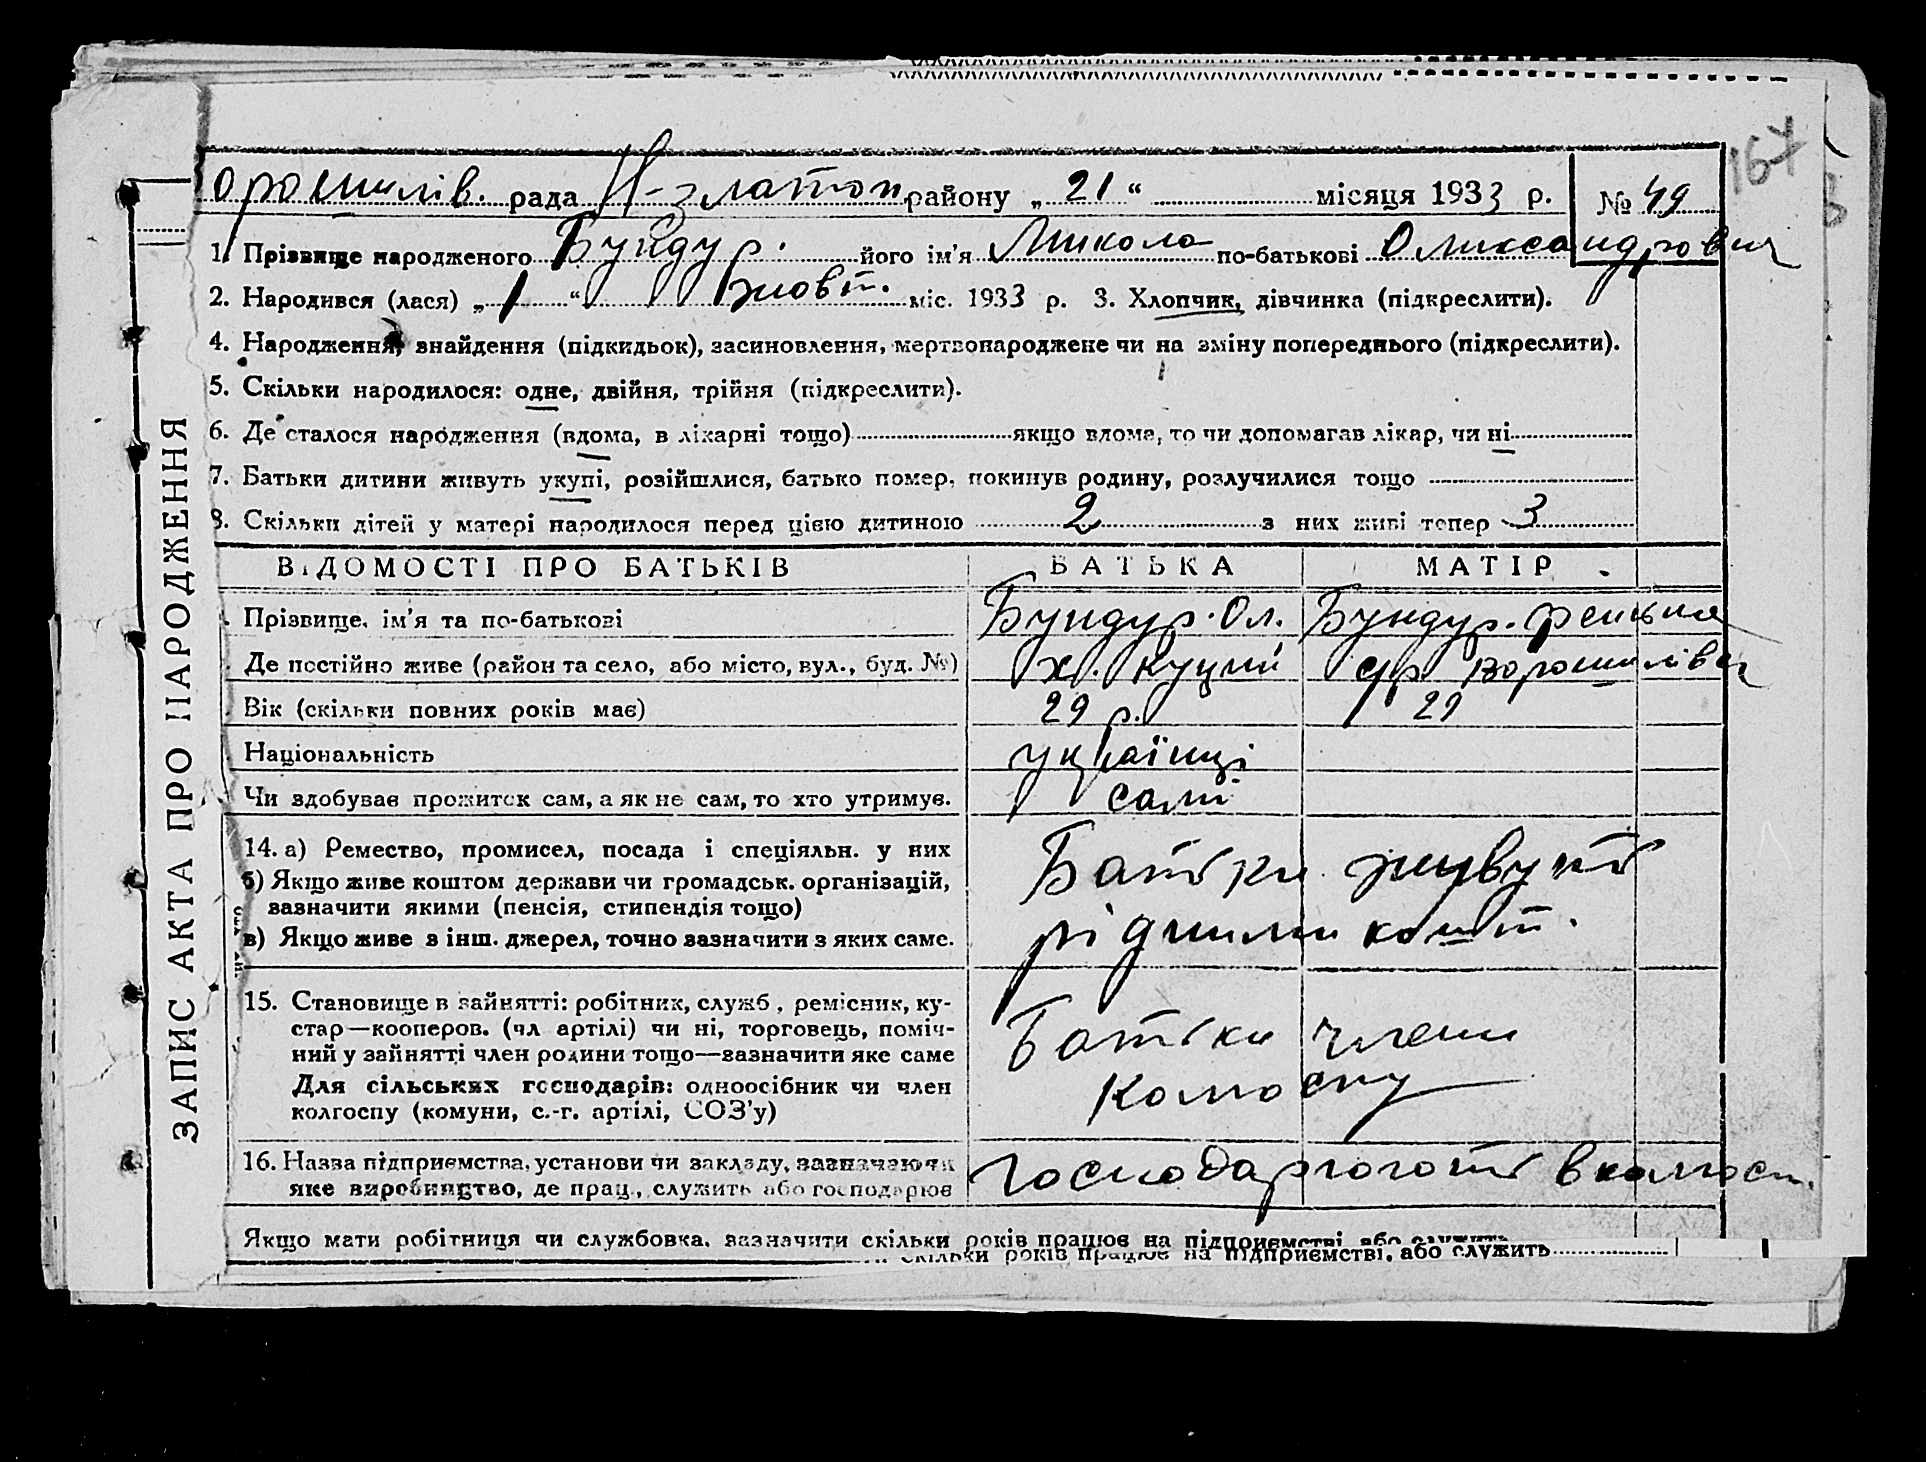 167
Ворошилів. рада Н-златоп. району „ 21 “ місяця 1933 р. № 49
1. Прізвище народженого Бундур. його ім'я Микола по-батькові Олександрович
2. Народився (лася) „ 1 “ жовт. міс. 1933 р. 3. Хлопчик, дівчинка (підкреслити).
4. Народження, знайдення (підкидьок), засиновлення, мертвонароджене чи на зміну попереднього (підкреслити).
5. Скільки народилося: одне, двійня, трійня (підкреслити).
6. Де сталося народження (вдома, в лікарні тощо) якщо вдома, то чи допомагав лікар, чи ні
7. Батьки дитини живуть укупі, розійшлися, батько помер, покинув родину, розлучилися тощо
8. Скільки дітей у матері народилося перед цією дитиною 2 з них живі тепер 3
ВІДОМОСТІ ПРО БАТЬКІВ БАТЬКА МАТІР
Прізвище, ім'я та по-батькові Бундур. Ол. Бундур.
Де постійно живе (район та село, або місто, вул., буд. №) х. Куций с/р Ворошилівка
Вік (скільки повних років має) 29 р. 29
Національність українці
Чи здобуває прожиток сам, а як не сам, то хто утримує. самі
14. а) Ремество, промисел, посада і спеціяльн. у них
б) Якщо живе коштом держави чи громадськ. організацій,
зазначити якими (пенсія, стипендія тощо)
в) Якщо живе з інш. джерел, точно зазначити з яких саме.
Батьки живуть
рідними кошт.
15. Становище в зайнятті: робітник, служб., ремісник, ку-
стар—кооперов. (чл артілі) чи ні, торговець, поміч-
ний у зайнятті член родини тощо—зазначити яке саме
Для сільських господарів: одноосібник чи член
колгоспу (комуни, с.-г. артілі, СОЗ'у)
Батьки члени
колгоспу
16. Назва підприємства, установи чи закладу, зазначаючи
яке виробництво, де прац., служить або господарює
господарюють в колгосп.
Якщо мати робітниця чи службовка, зазначити скільки років працює на підприємстві, або служить
скільки років працює на підприємстві, або служить
ЗАПИС АКТА ПРО НАРОДЖЕННЯ